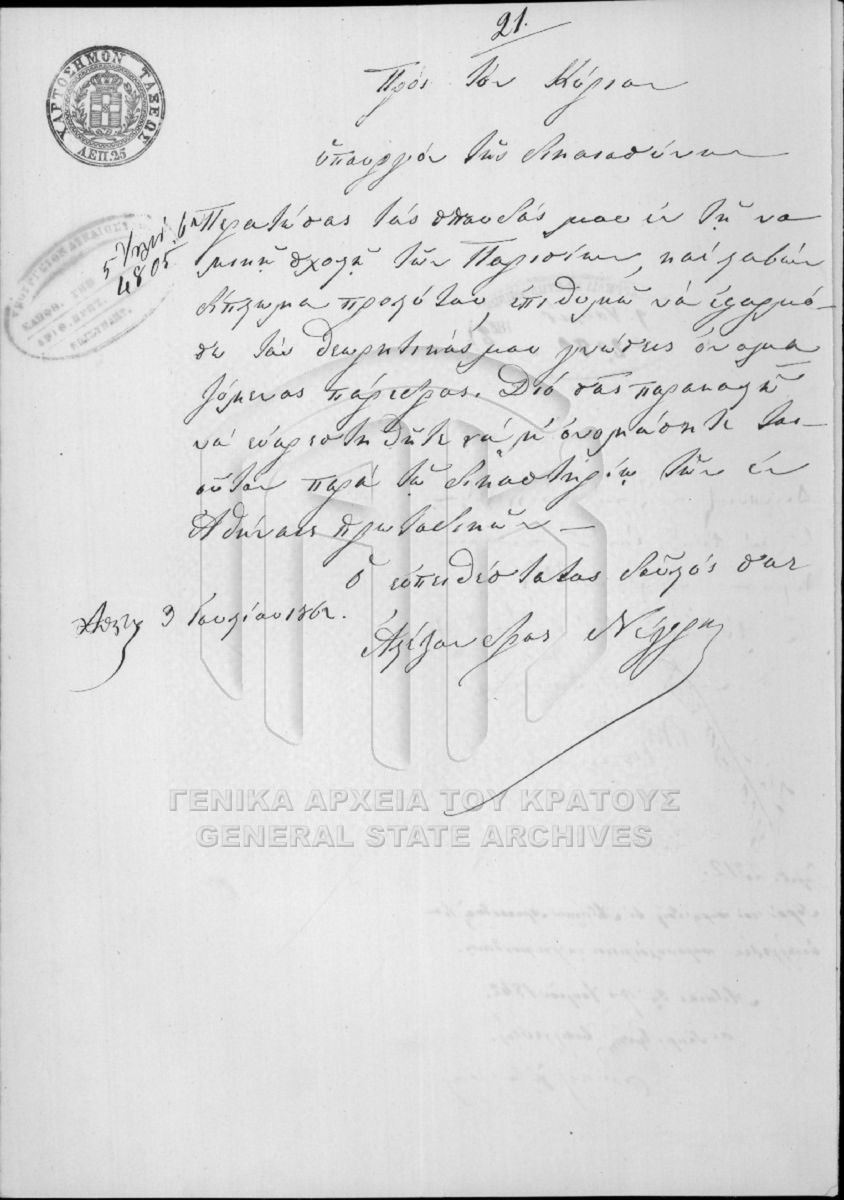 21.
ΧΑΡΤΟΣΗΜΟΝ ΤΑΞΕΩΣ
ΛΕΠ. 25
Πρὸς τὸν Κύριον
ὑπουργὸν τῆς δικαιοσύνης
4805
Περατώσας τὰς σπουδάς μου ἐν τῇ νο-
μικῇ σχολῇ τῶν Παρισίων, καὶ λαβὼν
δίπλωμα προλύτου, ἐπιθυμῶ νὰ ἐφαρμό-
σω τὰς θεωρητικάς μου γνώσεις ὀνομα
ζόμενος πάρεδρος. Διὸ σᾶς παρακαλῶ
νὰ εὐαρεστηθῆτε νὰ μὲ ὀνομάσητε τοι-
οῦτον παρὰ τῷ δικαστηρίῳ τῶν ἐν
Ἀθήναις πρωτοδικῶν—
ὁ εὐπειθέστατος δοῦλός σας
3 Ἰουλίου 1862.
Ἀλέξανδρος Νέγρης
ΓΕΝΙΚΑ ΑΡΧΕΙΑ ΤΟΥ ΚΡΑΤΟΥΣ
GENERAL STATE ARCHIVES